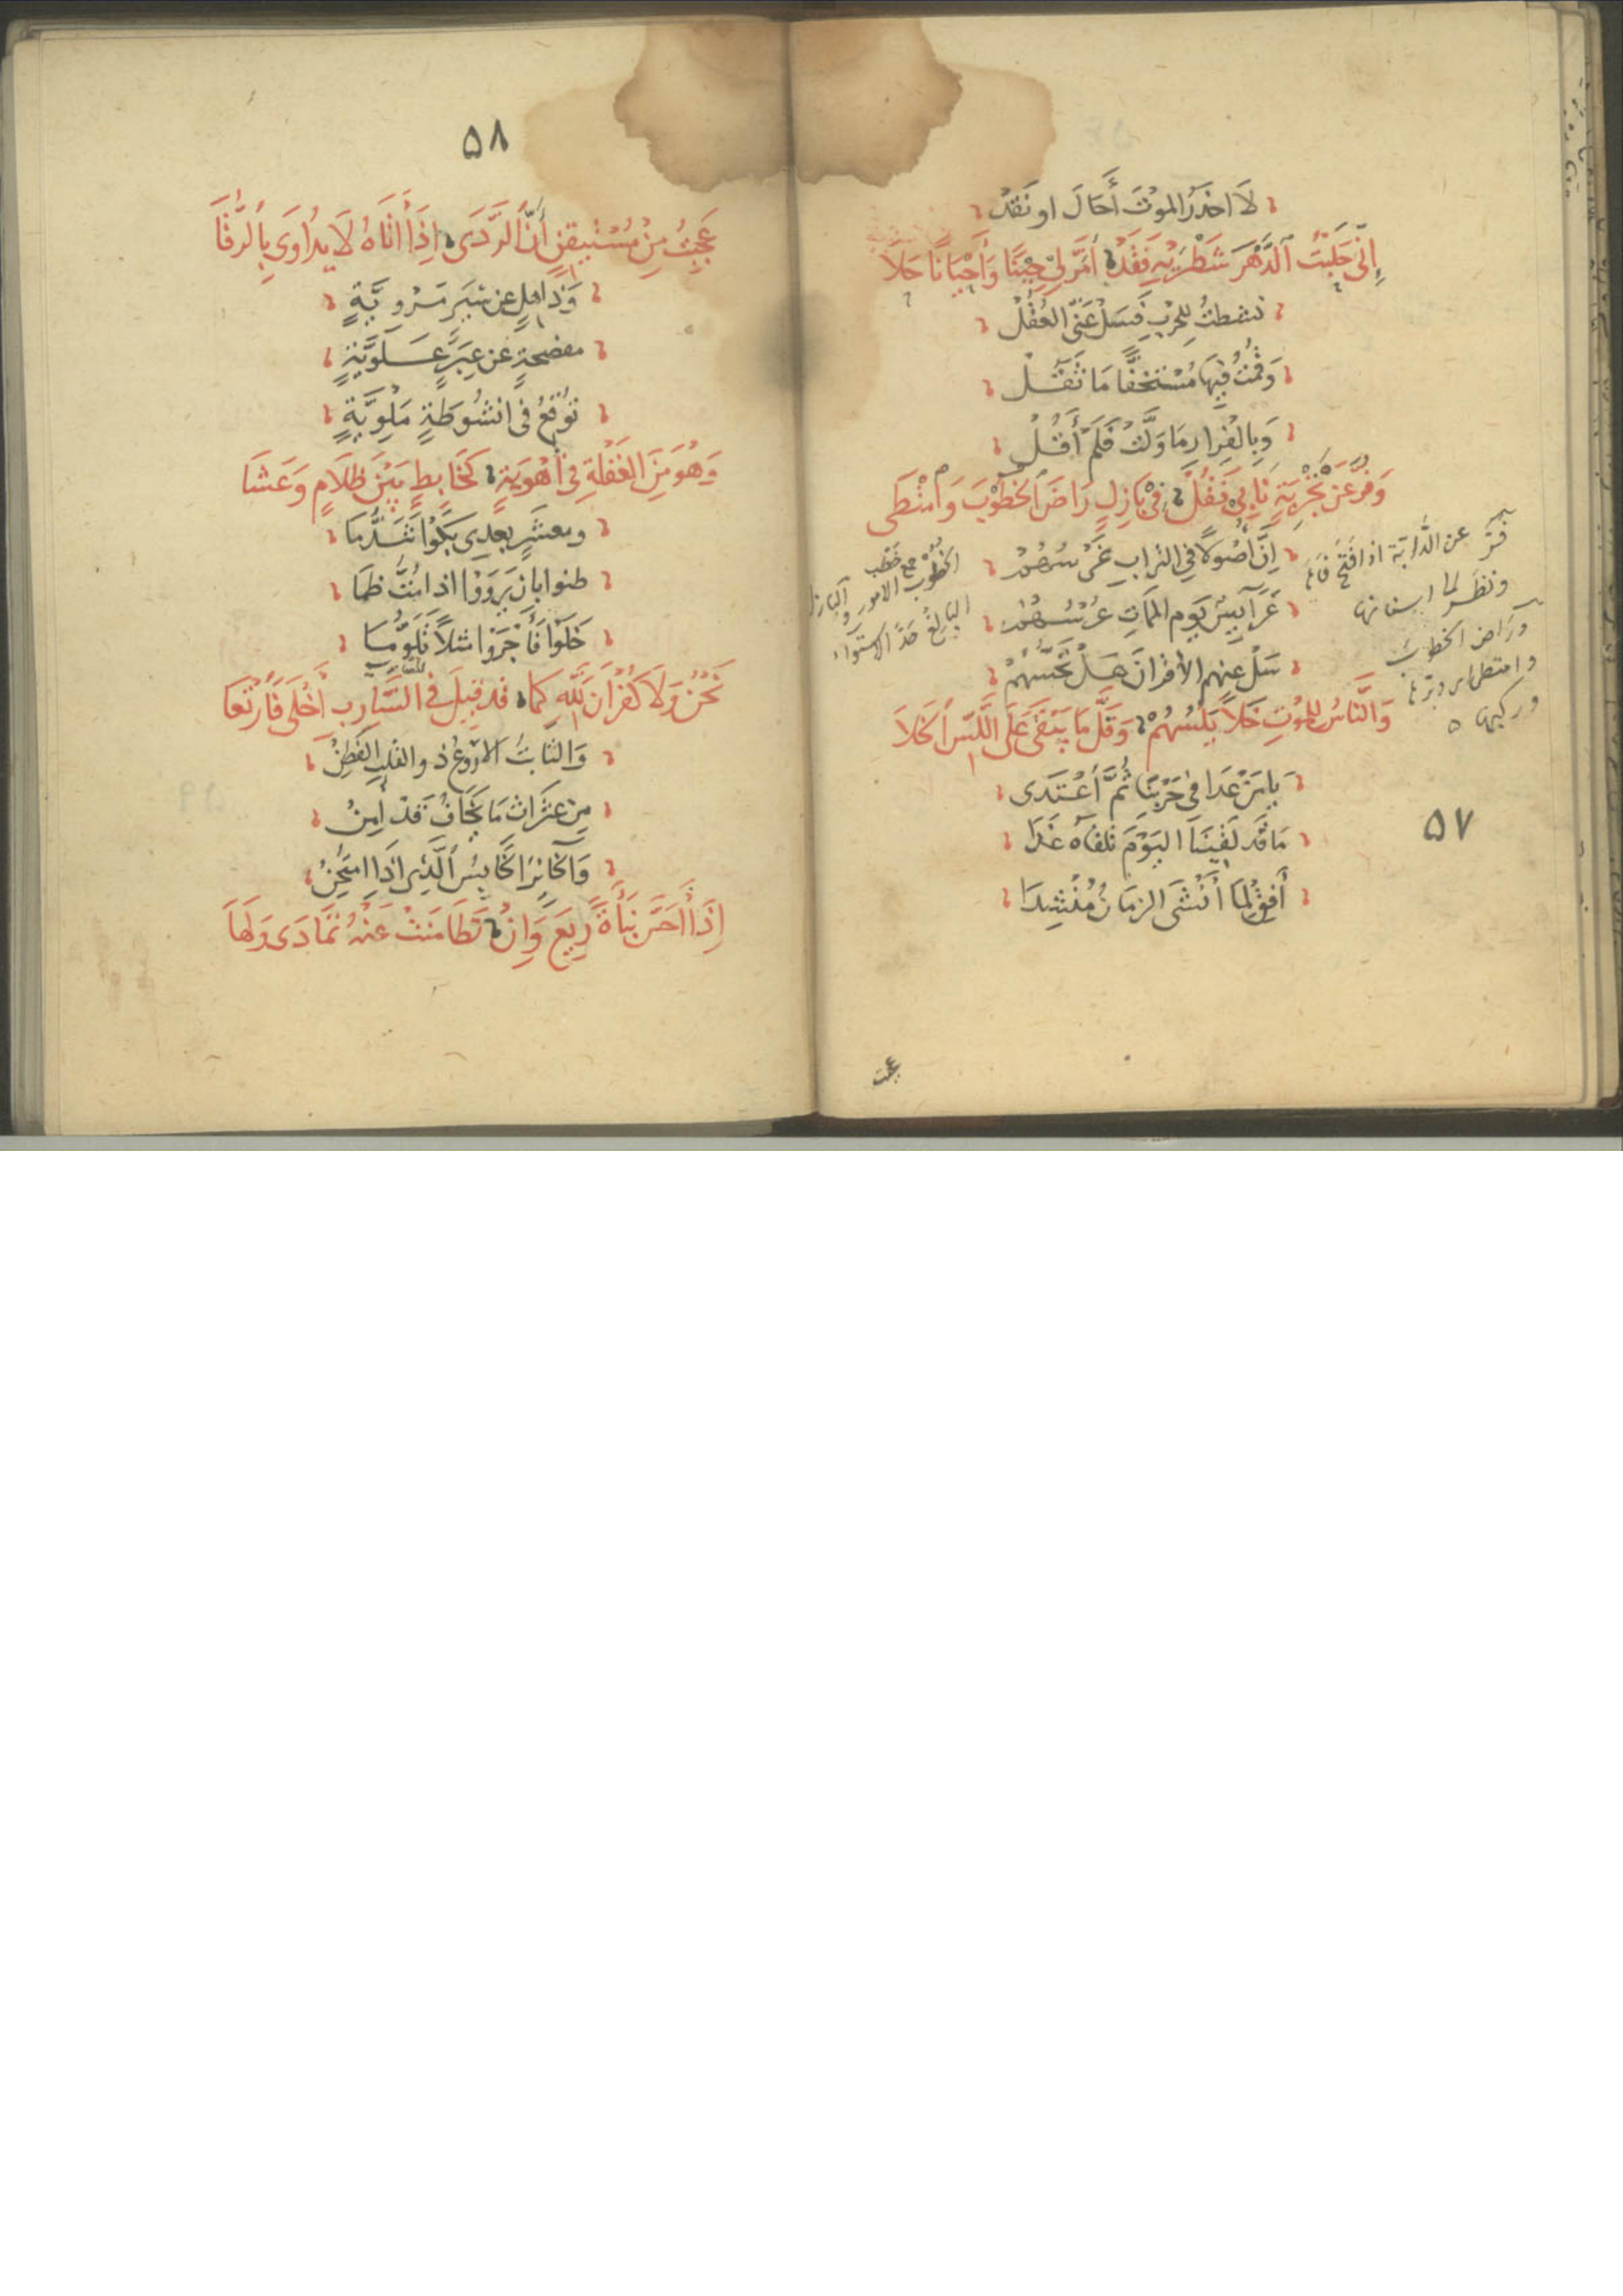 لَا احذَرُ الموْتَ أَحَالَ او نَقَدْ
إِنِّي حَلَبْتُ الدَّهْرَ شَطْرَيْهِ فَقَدْ أَمَرَّ لِي حِيْنًا وَأَحْيَانًا حَلَا
نشطتُ للحربِ فَسَلْ عَنِّي العُقُلْ
وَقُمْتُ فِيهَا مُسْتَخِفًّا مَا ثَقُلْ
وَبِالفِرَارِ مَا وَلَّتْ فَلَمْ أَقُلْ
وَفُرَّ عَنْ تَجْرِبَةٍ نَابِي فَقُلْ فِي بَازِلٍ رَاضَ الخُطُوْبَ وَامْتَطَى
إِنَّ أُصُولًا في التراب غَرْسُهُمْ
عَرَائِسٌ يَوم المَمَاتِ عُرْسُهُمْ
سَلْ عنهم الأقرانَ هَلْ تَحُسُّهُمْ
وَالنَّاسُ لِلمَوْتِ خَلًا يَلُسُّهُمْ وَقَلَّ مَا يَبْقَى عَلَى اللَّسِّ الخَلَا
يا مَنْ عَدَا في حَرْبِنَا ثُمَّ اعْتَدَى
مَا قَد لَقِينَا اليَوْمَ تلقاهُ غَدَا
أَفِقْ لِمَا أَنْشَى الزمَانُ مُنْشِدَا
فُرَّ عن الدابّة اذا فُتح فاها
ونظر لما اسنانها
ورَاض الخطوب
وامتطى
وركبها
الخُطُوب جمع خَطْب
الامور والبازل
البالغ حدّ الاستواء
٥٧
عجبت
٥٨
عَجِبْتُ مِنْ مُسْتَيْقِنٍ أَنَّ الرَّدَى إِذَا أَتَاهُ لَا يُدَاوَى بِالرُّقَا
وَذَاهِلٍ عن سِيَرٍ مَرْوِيَّةٍ
مفصحةٍ عَن عِبَرٍ عَلَوِيَّةٍ
تُوْقعُ في انشُوطَةٍ مَلْوِيَّةٍ
وَهُوَ مِنَ الغَفْلَةِ فِي أُهْوِيَّةٍ كَخَابِطٍ بَيْنَ ظَلَامٍ وَعَشَا
ومعشَرٍ بعدِى بَكَوْا تَنَدُّمَا
ظنوا بان يَرْوَوْا اذا مُتُّ ظَمَا
خَلَوْا فَأَجْرَوْا مثلًا تَلَوُّمَا
نَحْنُ وَلَا كُفْرَانَ لِلّهِ كَمَا قد قِيلَ في السَّارِبِ أَخْلَى فَارْتَعَا
وَالثَّابتُ الارْوَعُ ذو القلبِ الفَطِنْ
مِن عثَرَات مَا يَخَافُ قَدْ أَمِنْ
إِذَا أَحَسَّ نَبْأَةً رِيْعَ وَإِنْ تَطَامَنَتْ عَنْهُ تَمَادَى وَلَهَا